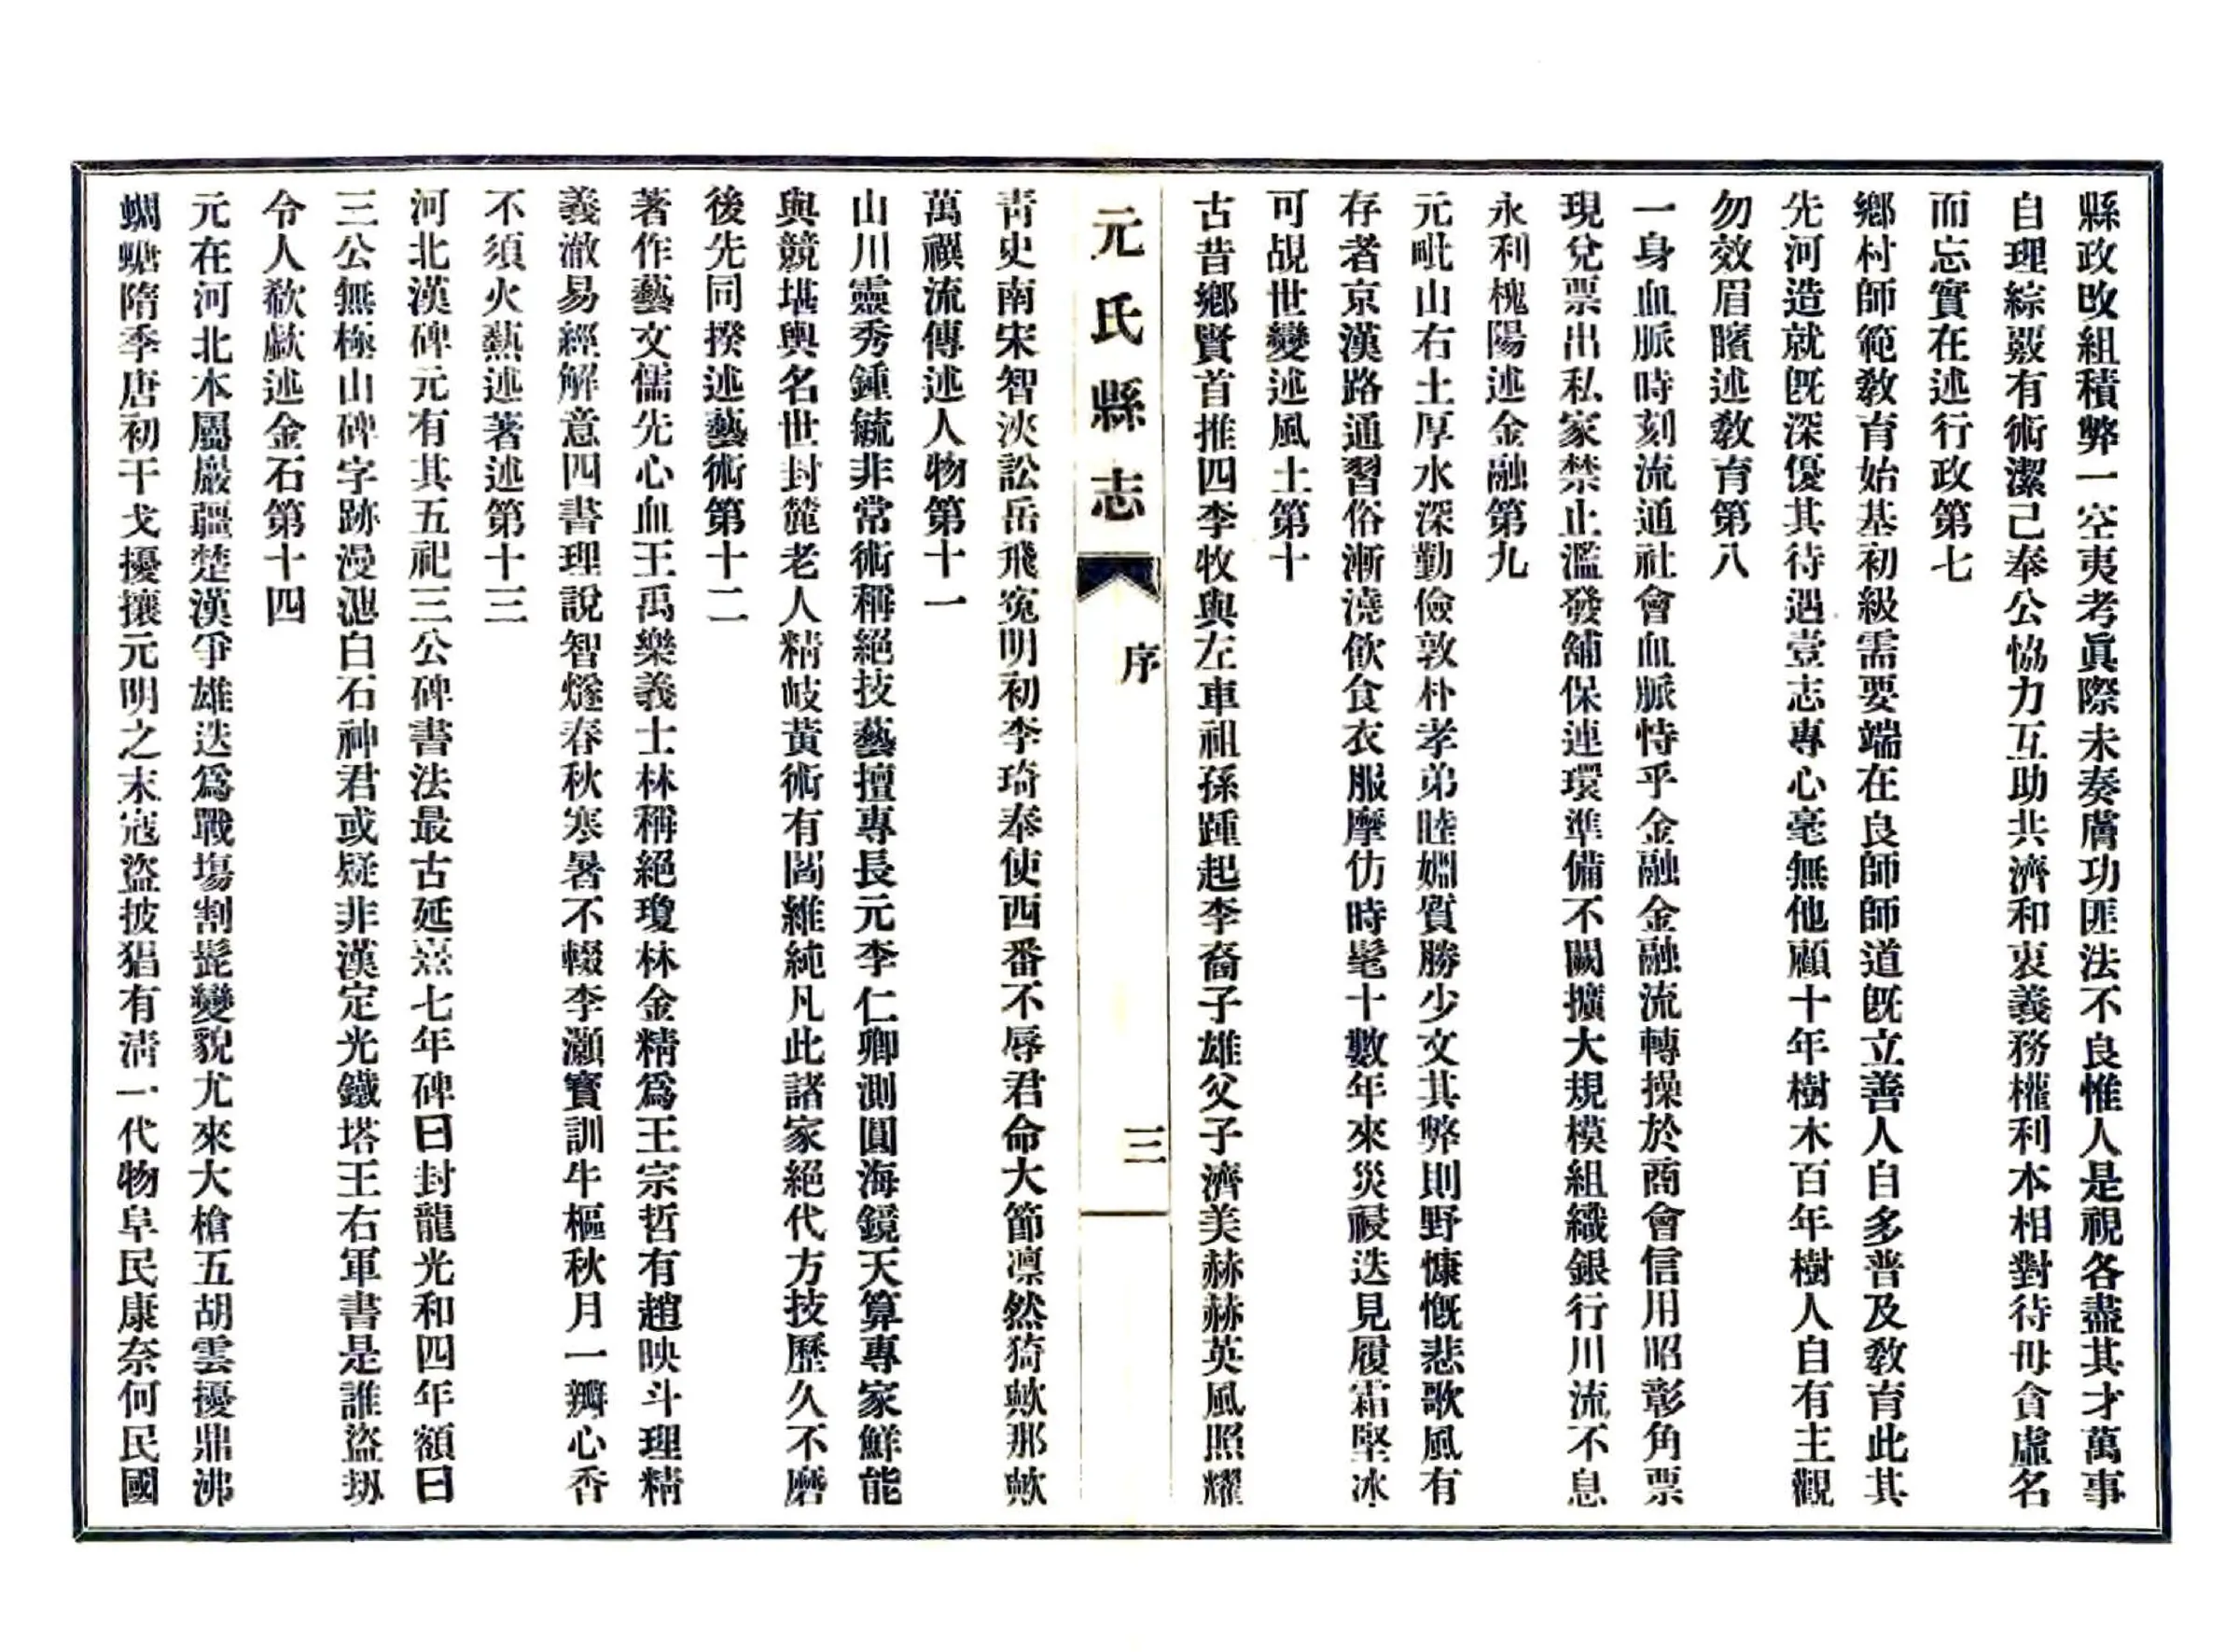 縣政改組積弊一空夷考眞際未奏膚功匪法不良惟人是視各盡其才萬事
自理綜覈有術潔己奉公恊力互助共濟和衷義務權利本相對待毋貪虛名
而忘實在述行政第七
鄉村師範敎育始基初級需要端在良師師道旣立善人自多普及敎育此其
先河造就旣深優其待遇壹志專心毫無他顧十年樹木百年樹人自有主觀
勿效眉臏述敎育第八
一身血脈時刻流通社會血脈恃乎金融金融流轉操於商會信用昭彰角票
現兌票出私家禁止濫發舖保連環準備不闕擴大規模組織銀行川流不息
永利槐陽述金融第九
元毗山右土厚水深勤儉敦朴孝弟睦婣質勝少文其弊則野慷慨悲歌風有
存者京漢路通習俗漸澆飲食衣服摩仿時髦十數年來災祲迭見履霜堅冰
可覘世變述風土第十
古昔鄉賢首推四李牧與左車祖孫踵起李裔子雄父子濟美赫赫英風照耀
元氏縣志
序
三
靑史南宋智浹訟岳飛寃明初李琦奉使西番不辱君命大節凛然猗歟那歟
萬禩流傳述人物第十一
山川靈秀鍾毓非常術稱絕技藝擅專長元李仁卿測圓海鏡天算專家鮮能
與競堪輿名世封麓老人精岐黃術有閻維純凡此諸家絕代方技歷久不磨
後先同揆述藝術第十二
著作藝文儒先心血王禹樂義士林稱絕瓊林金精爲王宗哲有趙映斗理精
義澈易經解意四書理說智燧春秋寒暑不輟李灝寳訓牛樞秋月一瓣心香
不須火爇述著述第十三
河北漢碑元有其五祀三公碑書法最古延熹七年碑曰封龍光和四年額曰
三公無極山碑字跡漫漶白石神君或疑非漢定光鐵塔王右軍書是誰盜刼
令人欷歔述金石第十四
元在河北本屬巖疆楚漢爭雄迭爲戰塲割髭變貌尤來大槍五胡雲擾鼎沸
蜩螗隋季唐初干戈擾攘元明之末寇盜披猖有淸一代物阜民康奈何民國